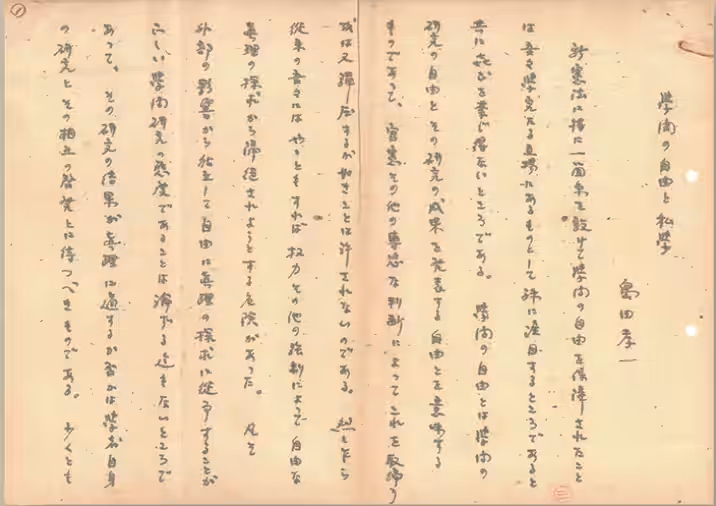 1
学問の自由と私学
島田孝一
新憲法に特に一箇条を設けて学問の自由を保障されたこと
は吾々学究たる立場にあるものとして殊に注目するところであると
共に喜びを禁じ得ないところである。 学問の自由とは学問の
研究の自由とその研究の成果を発表する自由とを意味する
ものであって、官憲その他の専恣な判断によってこれを取締り
或は又弾圧するが如きことは許されないのである。
従来の吾々にはやゝともすれば权力その他の強制によって自由な
真理の探求から遮絶されようとする危険があった。 凡そ
外部の影響から独立して自由に真理の探求に従事することが
正しい学問研究の態度であることは論ずる迄もないところで
あって、その研究の結果が真理に適するか否かは学者自身
の研究とその相互の啓発とに待つべきものである。 少くとも